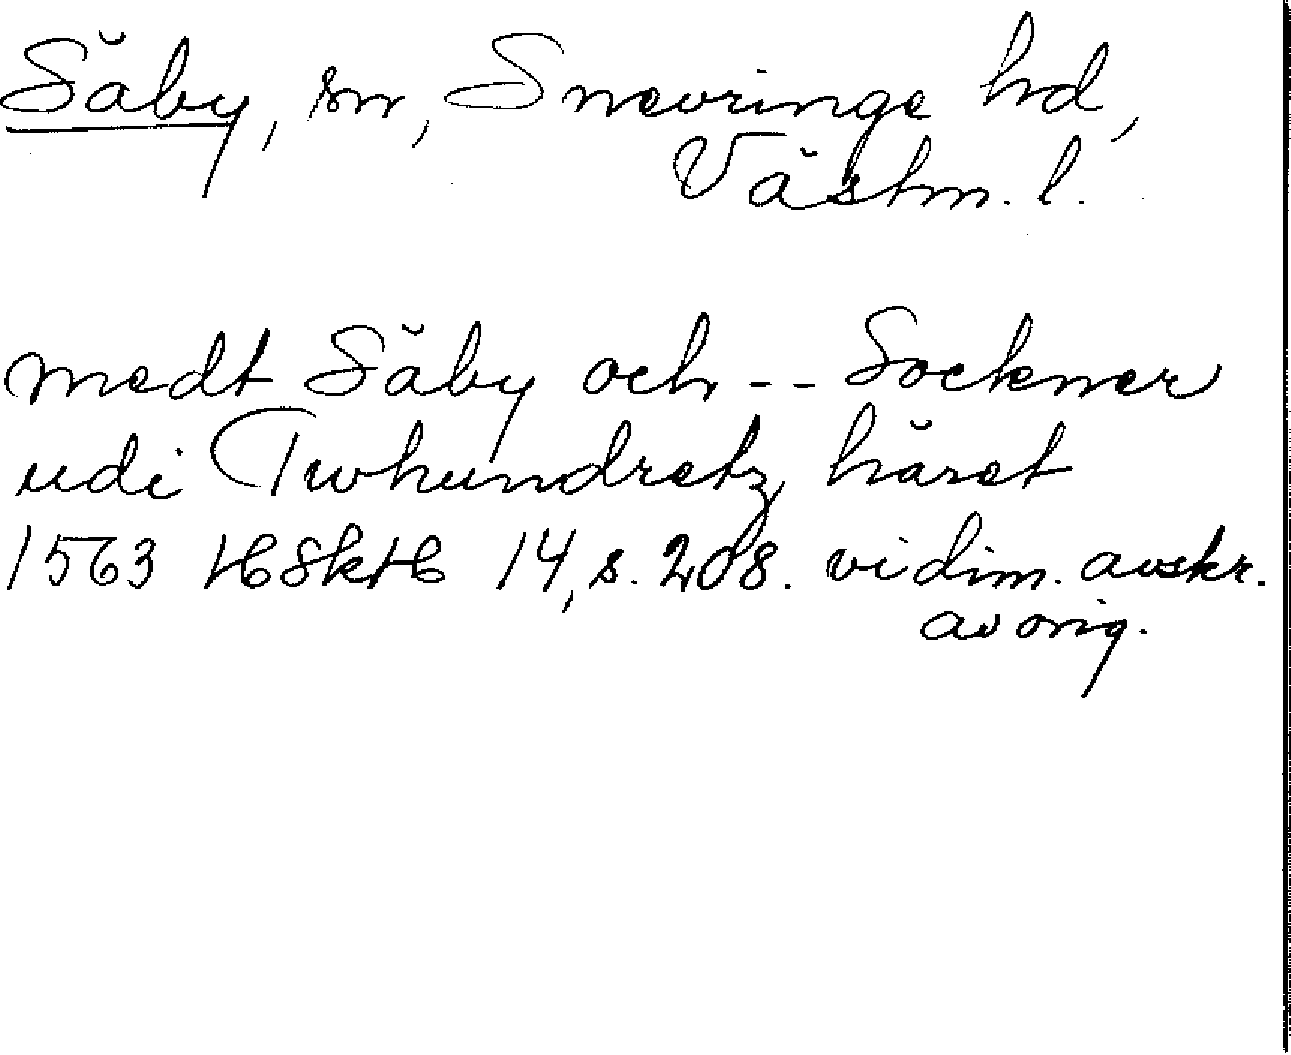 Säby, sn, Snevringe hd,
Västm. l.
medt Säby och -- Sockner
udi Twhundretz häret
1563 HSkH 14, s. 208. vidim. avskr.
av orig.